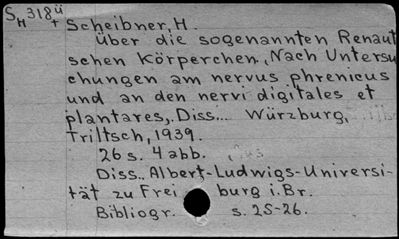 S H 318ü +
Scheibner, H.
Über die sogenannten Renaut
schen Körperchen. Nach Untersu
chungen am nervus phrenicus
und an den nervi digitales et
plantares,. Diss... Würzburg,
Triltsch, 1939.
26 s. 4 abb.
Diss., Albert-Ludwigs-Universi-
tät zu Frei burg i.Br.
Bibliogr. s. 25-26.